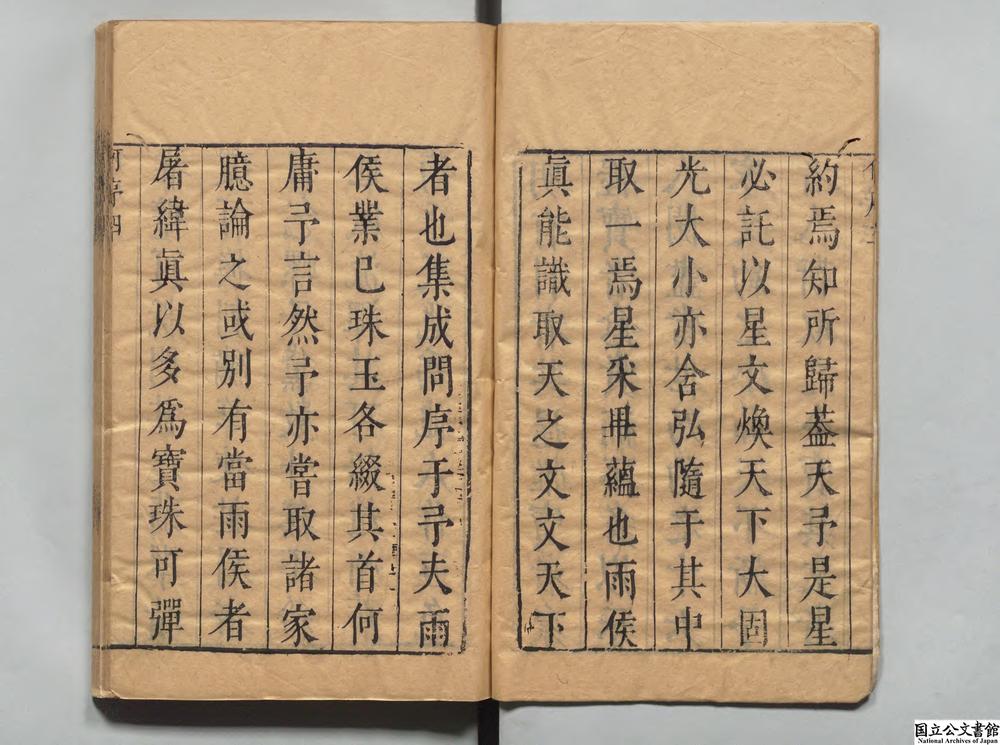 約焉知所歸葢天予是星
必託以星文煥天下大固
光大小亦含弘隨于其中
取一焉星采毋蘊也雨侯
眞能識取天之文文天下
者也集成問序于予夫雨
侯業已珠玉各綴其首何
庸予言然予亦嘗取諸家
臆論之或别有當雨侯者
屠緯眞以多爲寶珠可彈
序四
国立公文書館
National Archives of Japan